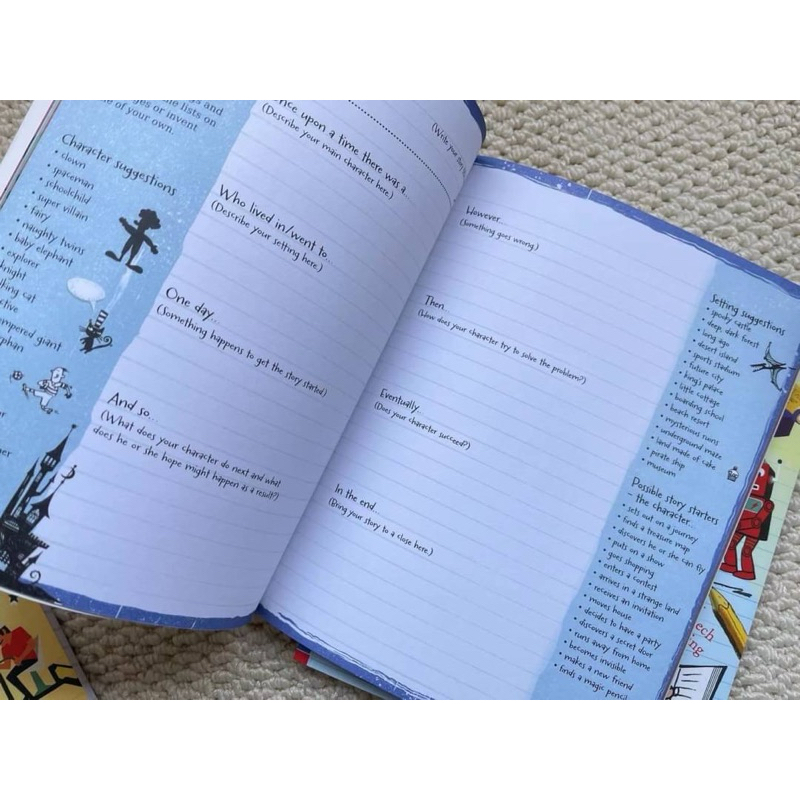 s and
e lists on
ges or invent
e of your own.
Character suggestions
• clown
• spaceman
• schoolchild
• super villain
• fairy
• naughty twins
• baby elephant
• explorer
knight
king cat
ctive
mpered giant
phan
nce upon a time there was a...
(Describe your main character here.)
Who lived in/went to...
(Describe your setting here.)
One day...
(Something happens to get the story started)
And so...
(What does your character do next and what
does he or she hope might happen as a result?)
However...
(Something goes wrong.)
Then...
(How does your character try to solve the problem?)
Eventually...
(Does your character succeed?)
In the end...
(Bring your story to a close here.)
Setting suggestions
• spooky castle
• deep, dark forest
• long ago
• desert island
• sports stadium
• future city
• king's palace
• little cottage
• boarding school
• beach resort
• mysterious ruins
• underground maze
• land made of cake
• pirate ship
• museum
Possible story starters
– the character...
• sets out on a journey
• finds a treasure map
• discovers he or she can fly
• puts on a show
• goes shopping
• enters a contest
• arrives in a strange land
• receives an invitation
• moves house
• decides to have a party
• discovers a secret door
• runs away from home
• becomes invisible
• makes a new friend
• finds a magic pencil
ech
ing